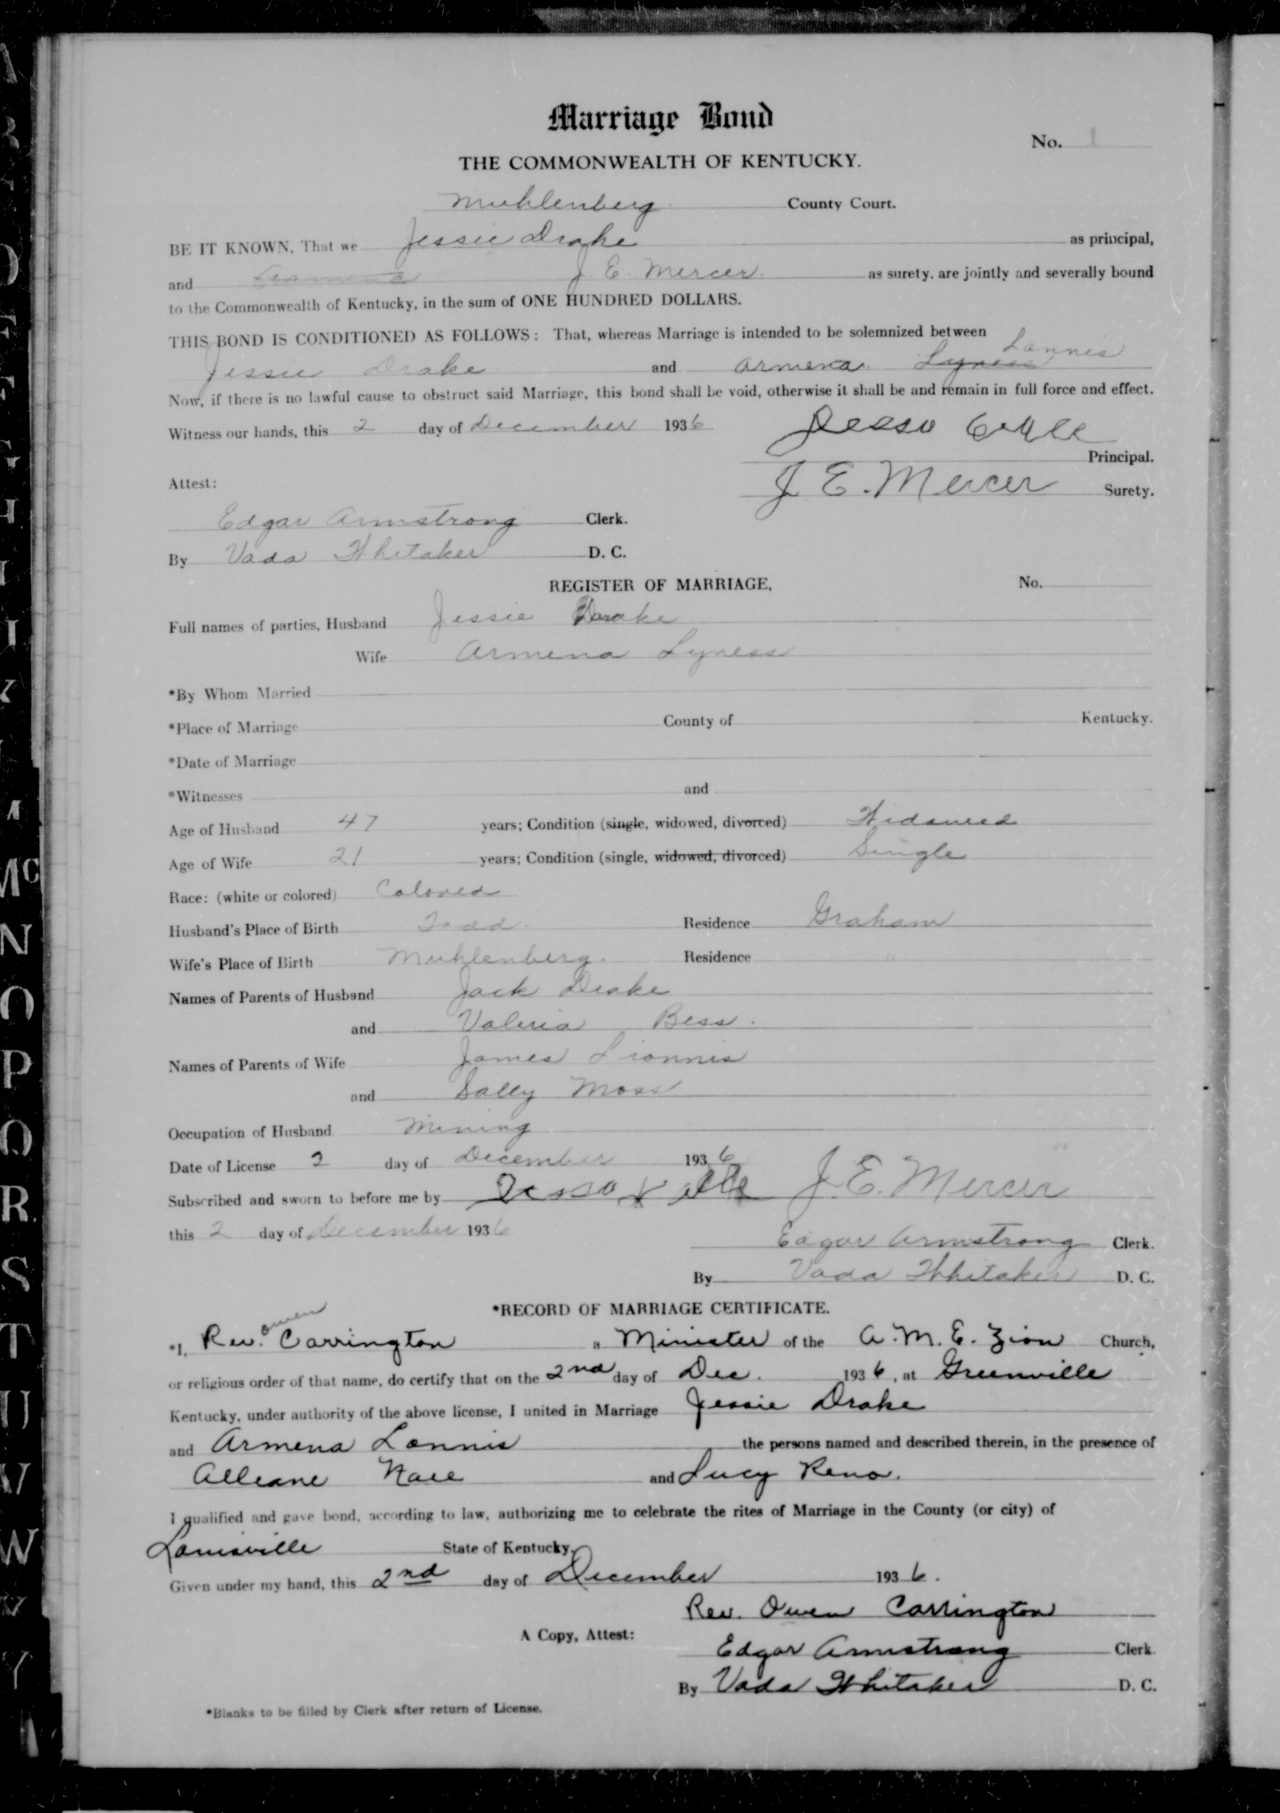 Marriage Bond
No. 1
THE COMMONWEALTH OF KENTUCKY.
Muhlenberg County Court.
BE IT KNOWN, That we Jessie Drake as principal,
and J E. Mercer. as surety, are jointly and severally bound
to the Commonwealth of Kentucky, in the sum of ONE HUNDRED DOLLARS.
THIS BOND IS CONDITIONED AS FOLLOWS: That, whereas Marriage is intended to be solemnized between
Jessie Drake and Armena Lyness Lannis
Now, if there is no lawful cause to obstruct said Marriage, this bond shall be void, otherwise it shall be and remain in full force and effect.
Witness our hands, this 2 day of December 1936
Principal.
Attest: J. E. Mercer Surety.
Edgar Armstrong Clerk.
By Vada Whitaker D. C.
REGISTER OF MARRIAGE, No.
Full names of parties, Husband Jessie Drake
Wife Armena Lyness
*By Whom Married
*Place of Marriage County of Kentucky.
*Date of Marriage
*Witnesses and
Age of Husband 47 years; Condition (single, widowed, divorced) Widowed
Age of Wife 21 years; Condition (single, widowed, divorced) Single
Race: (white or colored) Colored
Husband's Place of Birth Todd. Residence Graham
Wife's Place of Birth Muhlenberg. Residence "
Names of Parents of Husband Jack Drake
and Valeria Bess.
Names of Parents of Wife James Lionnis
and Sally Moss
Occupation of Husband Mining
Date of License 2 day of December 1936
Subscribed and sworn to before me by J. E. Mercer
this 2 day of December 1936
Edgar Armstrong Clerk.
By Vada Whitaker D. C.
*RECORD OF MARRIAGE CERTIFICATE.
*I, Rev. Owen Carrington a Minister of the A. M. E. Zion Church,
or religious order of that name, do certify that on the 2nd day of Dec. 1936, at Greenville
Kentucky, under authority of the above license, I united in Marriage Jessie Drake
and Armena Lannis the persons named and described therein, in the presence of
Alleane Nall and Lucy Reno.
I qualified and gave bond, according to law, authorizing me to celebrate the rites of Marriage in the County (or city) of
Louisville State of Kentucky.
Given under my hand, this 2nd day of December 1936.
Rev. Owen Carrington
A Copy, Attest:
Edgar Armstrong Clerk
By Vada Whitaker D. C.
*Blanks to be filled by Clerk after return of License.